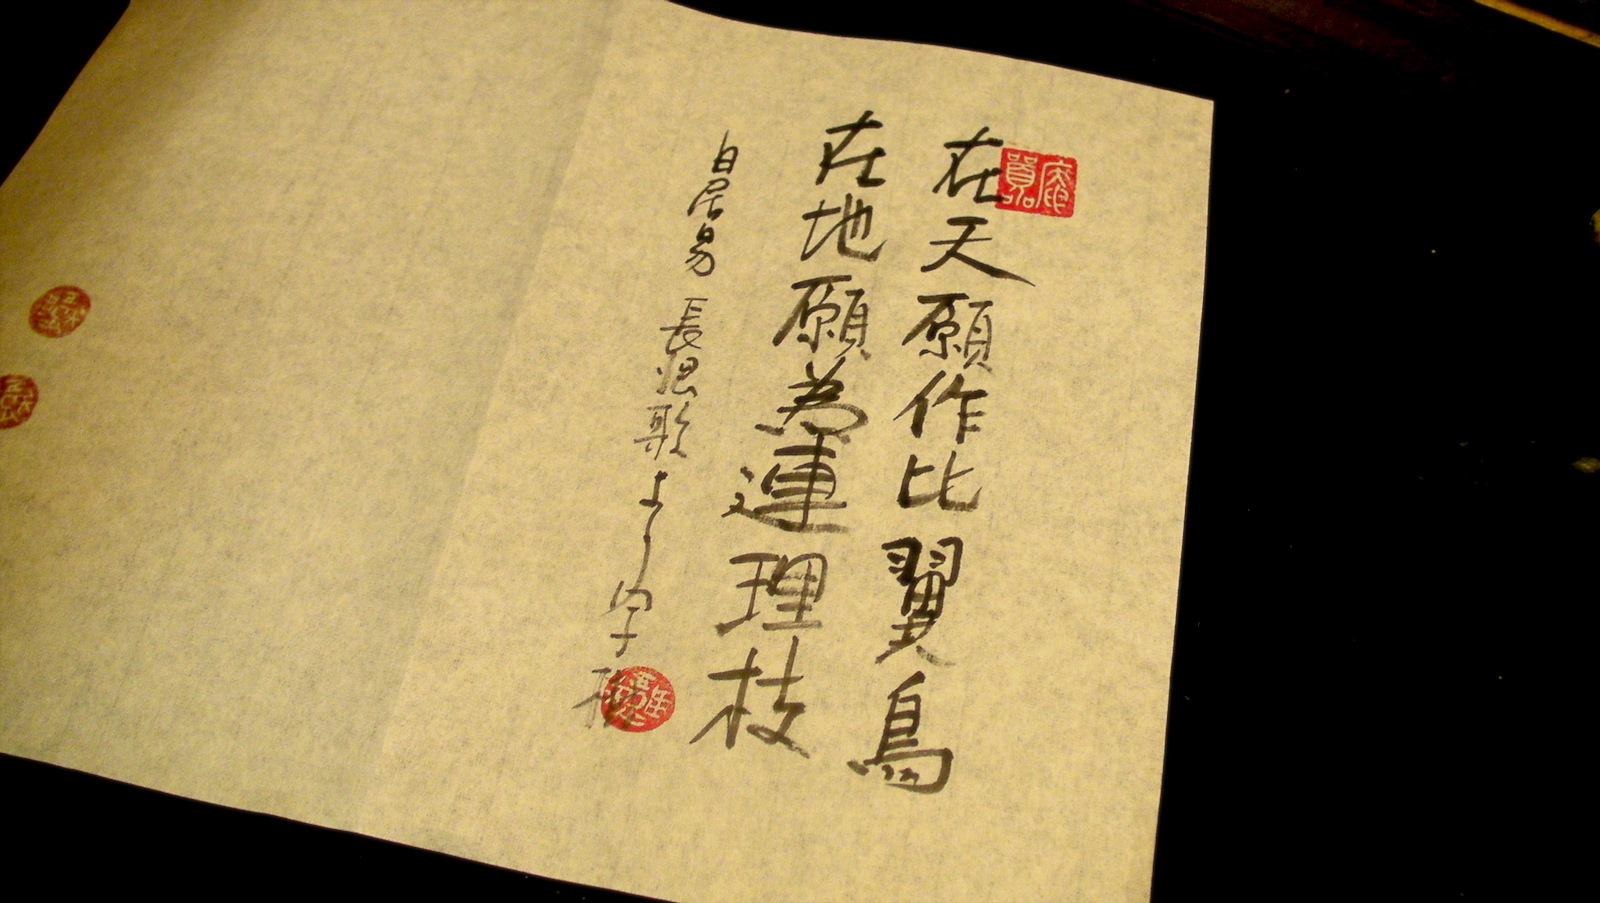 在天願作比翼鳥
在地願為連理枝
白居易 長恨歌より